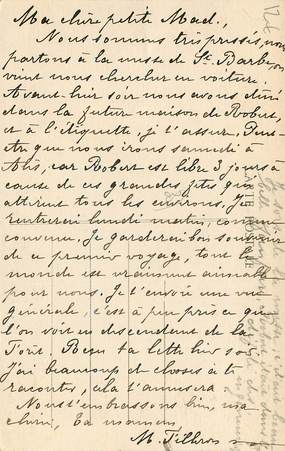 Ma chère petite Mad.,
Nous sommes très pressés, nous
partons à la messe de Ste Barbe, on
vient nous chercher en voiture.
Avant-hier soir nous avons dîné
dans la future maison de Robert,
et à l'étiquette, je t'assure. Peut-
être que nous irons samedi à
Alès, car Robert est libre 3 jours à
cause de ces grandes fêtes qui
attirent tous les environs. Je
rentrerai lundi matin, comme
convenu. Je garderai bon souvenir
de ce premier voyage, tout le
monde est vraiment aimable
pour nous. Je t'envoie une vue
générale, c'est à peu près ce que
l'on voit en descendant de la
Forêt. Reçu ta lettre hier soir.
J'ai beaucoup de choses à te
raconter, cela t'amusera
Nous t'embrassons bien, ma
chérie, Ta maman,
M.